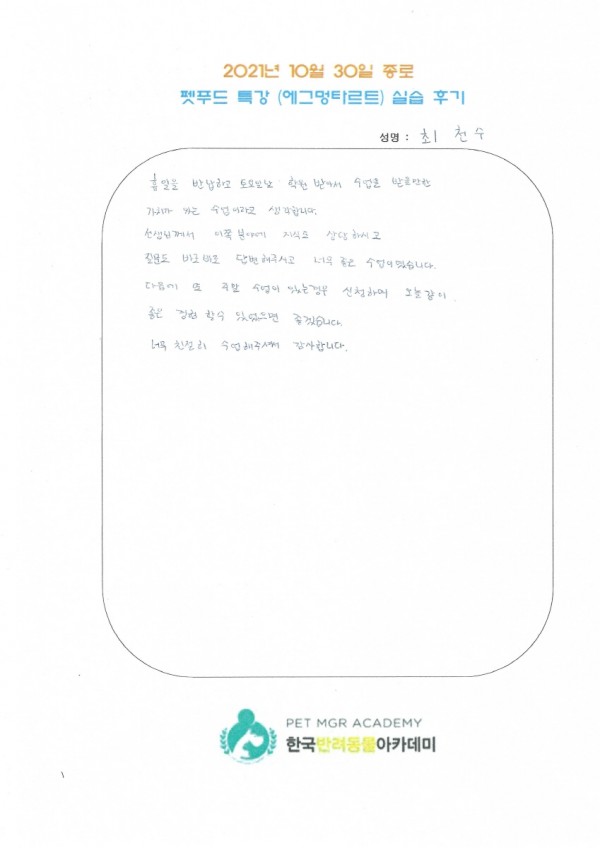 2021년 10월 30일 종로
펫푸드 특강 (에그멍타르트) 실습 후기
성명 : 최 천 수
휴일을 반납하고 토요일날 학원 수업을 받을만한
가치가 있는 수업이라고 생각합니다.
선생님께서 이쪽 분야에 지식도 상당하시고
질문도 바로바로 답변해주시고 너무 좋은 수업이었습니다.
다음에 또 주말 수업이 있는경우 신청하여 오늘같이
좋은 경험 할수 있었으면 좋겠습니다.
너무 친절히 수업해주셔서 감사합니다.
PET MGR ACADEMY
한국반려동물아카데미